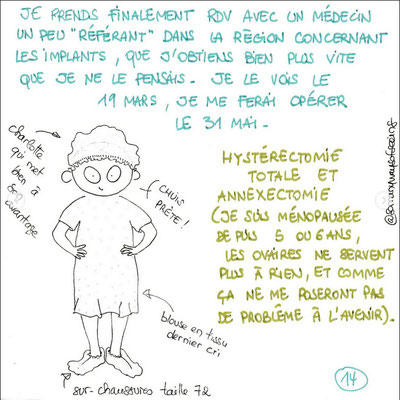 JE PRENDS FINALEMENT RDV AVEC UN MÉDECIN
UN PEU "RÉFÉRANT" DANS LA RÉGION CONCERNANT
LES IMPLANTS, QUE J'OBTIENS BIEN PLUS VITE
QUE JE NE LE PENSAIS. JE LE VOIS LE
19 MARS, JE ME FERAI OPÉRER
LE 31 MAI.
charlotte
qui met
bien à
avantage
CHUIS
PRÊTE!
HYSTÉRECTOMIE
TOTALE ET
ANNEXECTOMIE
(JE SUIS MÉNOPAUSÉE
DEPUIS 5 OU 6 ANS,
LES OVAIRES NE SERVENT
PLUS À RIEN, ET COMME
ÇA NE ME POSERONT PAS
DE PROBLÈME À L'AVENIR).
blouse en tissu
dernier cri
sur-chaussures taille 72
14